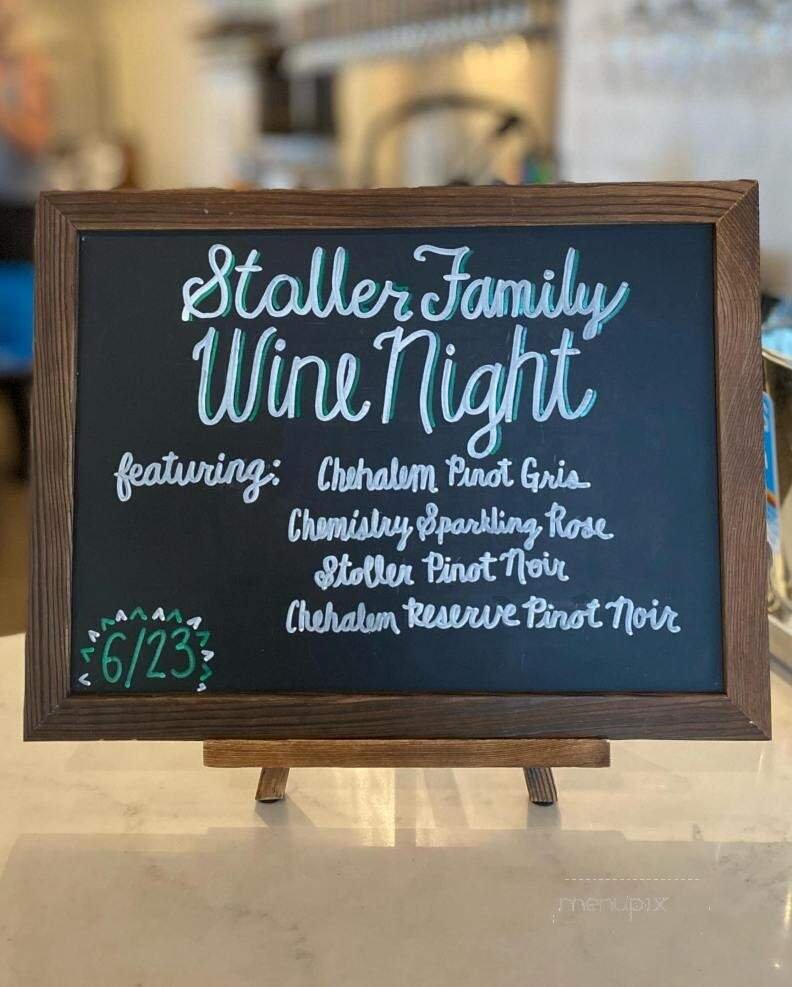 Stoller Family
Wine Night
featuring:
Chehalem Pinot Gris
Chemistry Sparkling Rose
Stoller Pinot Noir
Chehalem Reserve Pinot Noir
6/23
menupix